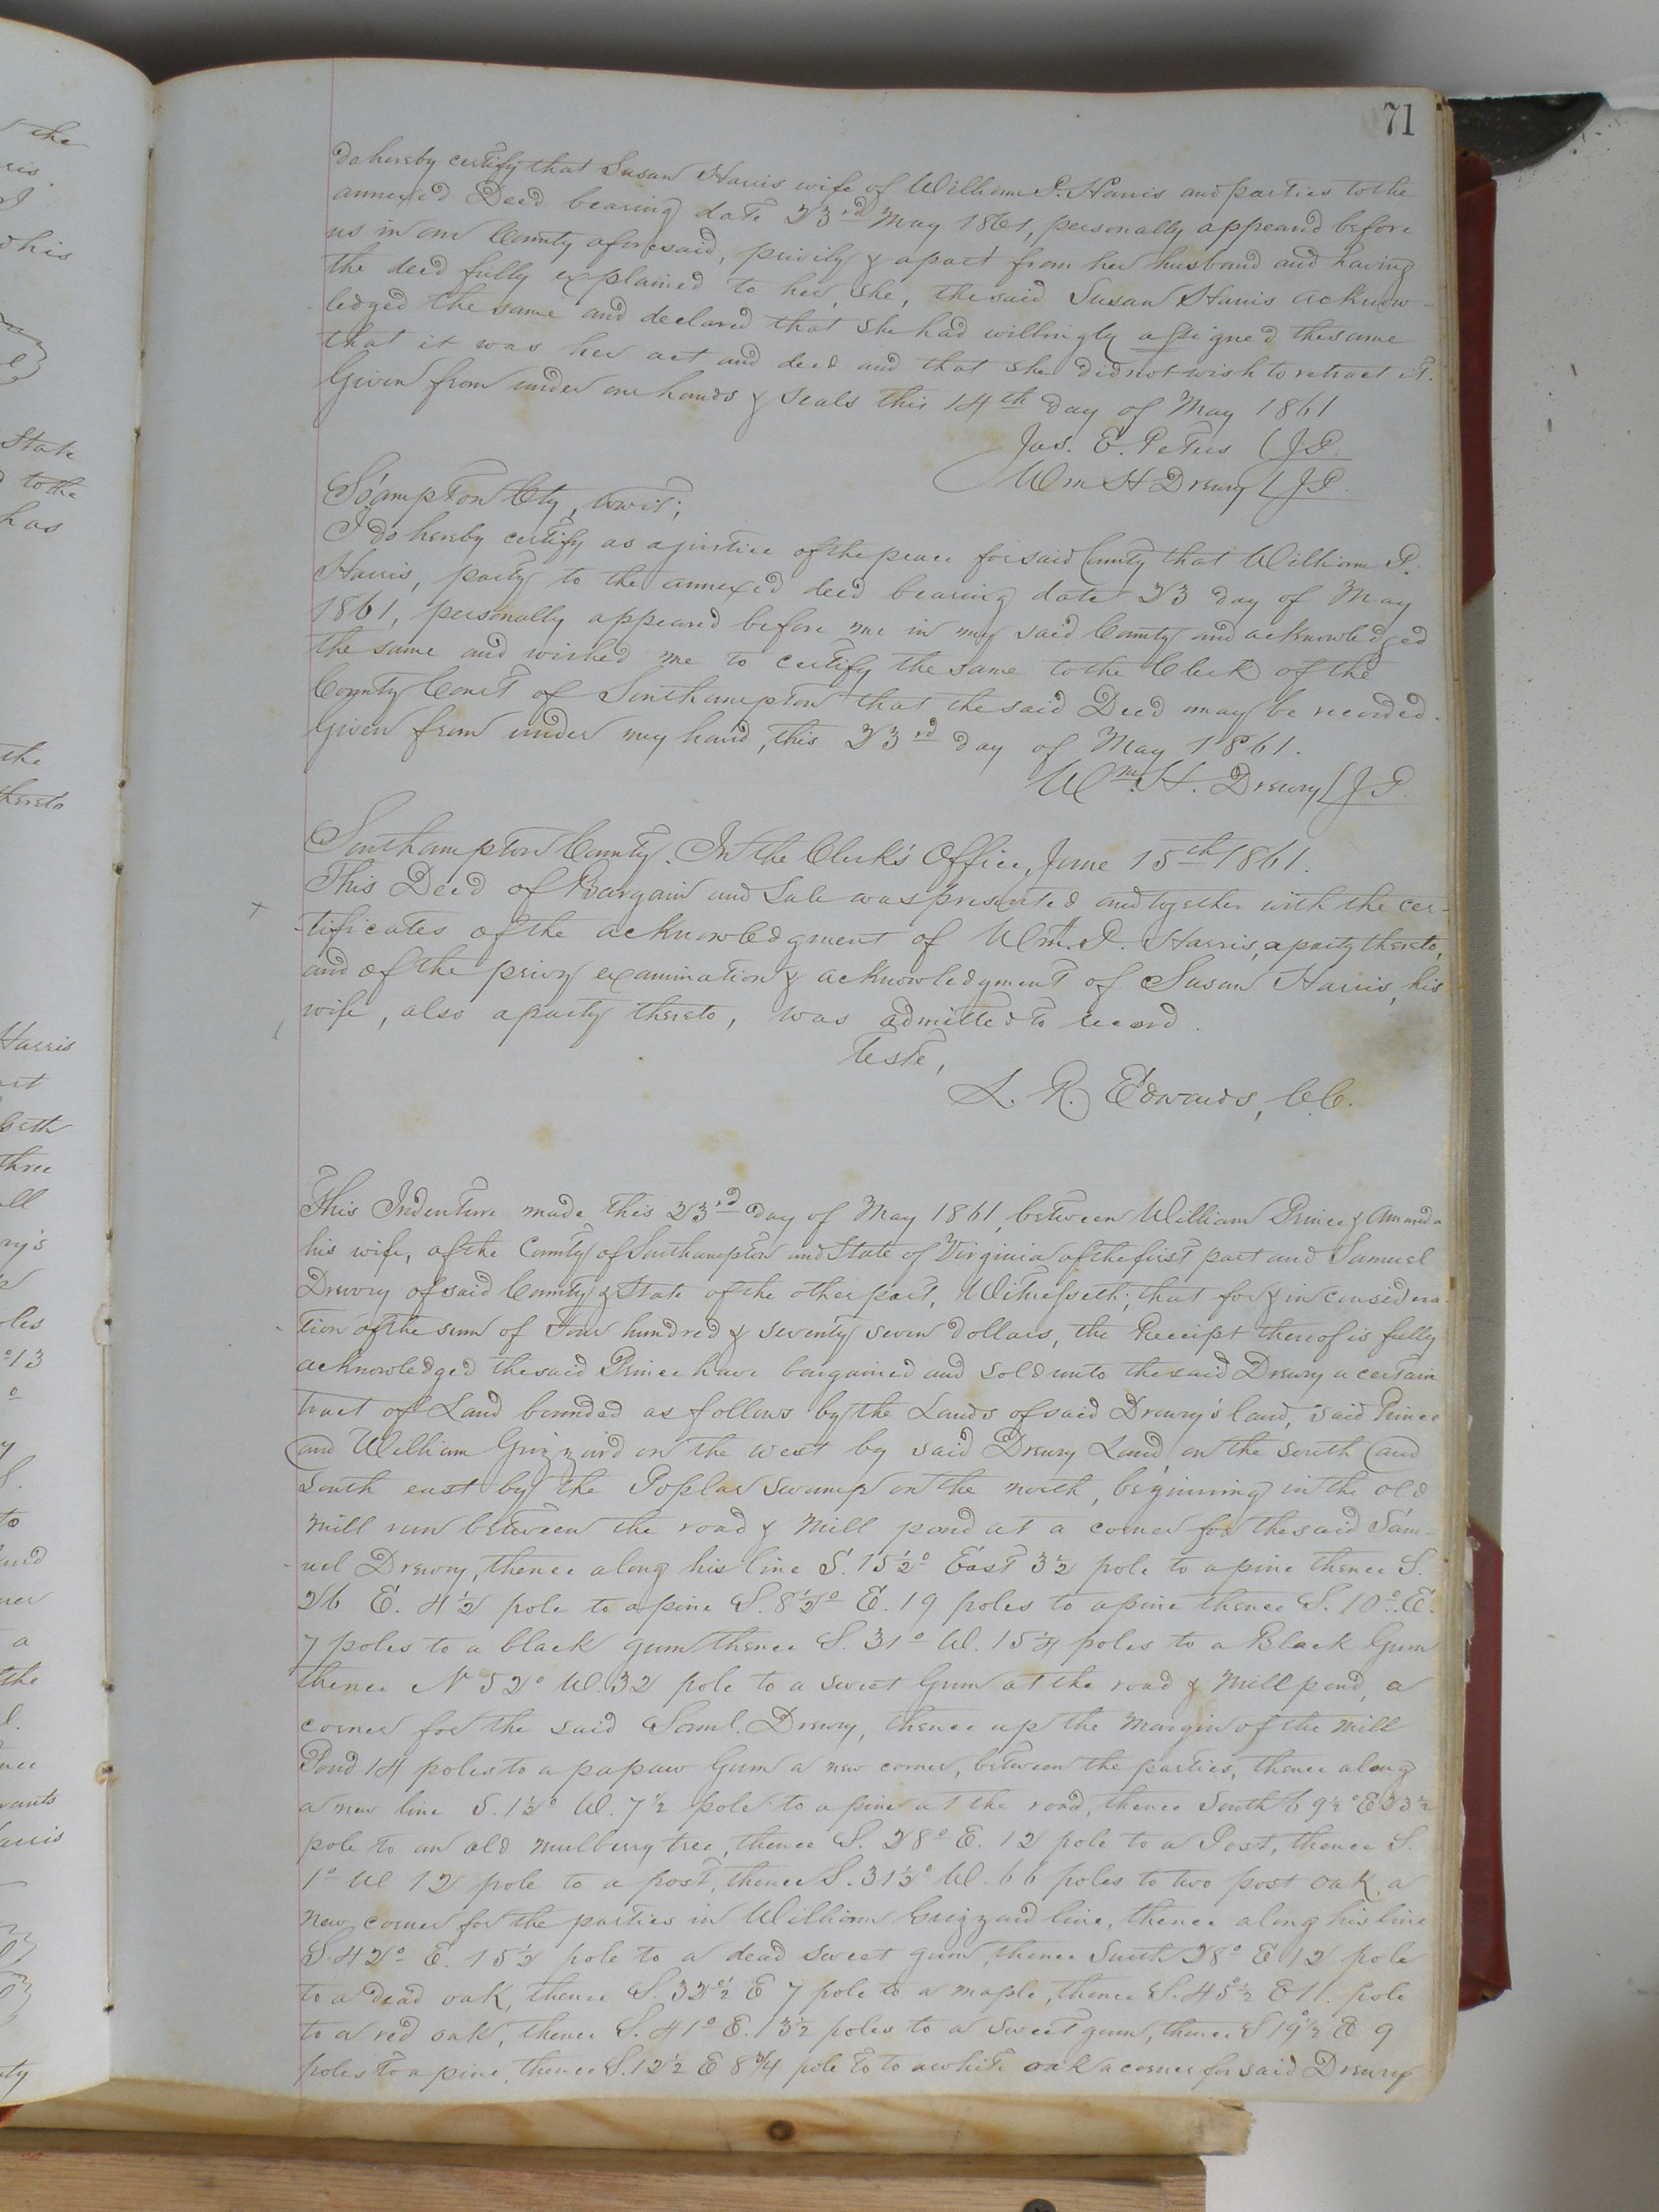 71
do hereby certify that Susan Harris wife of William P. Harris and parties to the
annexed Deed bearing date 23rd May 1861, personally appeared before
us in our County aforesaid, privily & apart from her husband and having
the deed fully explained to her, she, the said Susan Harris acknow-
ledged the same and declared that she had willingly assigned the same
that it was her act and deed and that she did not wish to retract it.
Given from under our hands & seals this 14th day of May 1861
Jas. E. Peters (J.P.
Wm H Drewry (J.P.
So'ampton Cty, towit;
I do hereby certify as a justice of the peace for said County that William P.
Harris, party to the annexed deed bearing date 23 day of May
1861, personally appeared before me in my said County and acknowledged
the same and wished me to certify the same to the Clerk of the
County Court of Southampton that the said Deed may be recorded.
Given from under my hand, this 23rd day of May 1861.
Wm. H. Drewry (J.P.
Southampton County. In the Clerk's Office, June 15th 1861.
This Deed of Bargain and Sale was presented and together with the cer-
tificates of the acknowledgment of Wm. P. Harris, a party thereto,
and of the privy examination & acknowledgment of Susan Harris, his
wife, also a party thereto, was admitted to record.
Teste,
L. R. Edwards, C.C.
This Indenture made this 23rd day of May 1861 between William Prince & Amanda
his wife, of the County of Southampton and State of Virginia of the first part and Samuel
Drewry of said County & State of the other part, Witnesseth; that for & in considera-
tion of the sum of Four hundred & seventy seven dollars, the Receipt thereof is fully
acknowledged the said Prince have bargained and sold unto the said Drewry a certain
tract of Land bounded as follows by the Lands of said Drewry's land, said Prince
and William Grizzard on the west by said Drewry Land, on the south and
south east by the Poplar swamp on the north, beginning in the old
mill run between the road & Mill pond at a corner for the said Sam-
uel Drewry, thence along his line S. 15½° East 3½ pole to a pine thence S.
26 E. 4½ pole to a pine S. 8½° E. 19 poles to a pine thence S. 10° E.
7 poles to a black gum thence S. 31° W. 15¼ poles to a Black Gum
thence N 52° W. 32 pole to a sweet Gum at the road & Mill pond, a
corner for the said Saml. Drewry, thence up the Margin of the Mill
Pond 14 poles to a papaw Gum a new corner, between the parties, thence along
a new line S. 1½° W. 7½ pole to a pine at the road, thence South 69½° E 23½
pole to an old mulberry tree, thence S. 28° E. 12 pole to a Post, thence S.
1° W 12 pole to a post, thence S. 31½° W. 66 poles to two post oak, a
new corner for the parties in William Grizzard line, thence along his line
S. 42° E. 15½ pole to a dead sweet gum, thence South 28° E 12 pole
to a dead oak, thence S. 32°½ E 7 pole to a maple, thence S. 45°½ E 11. pole
to a red oak, thence S. 41° E. 13½ poles to a sweet gum, thence S 19°½ E 9
poles to a pine, thence S. 12½ E 8¾ pole to to a white oak a corner for said Drewry